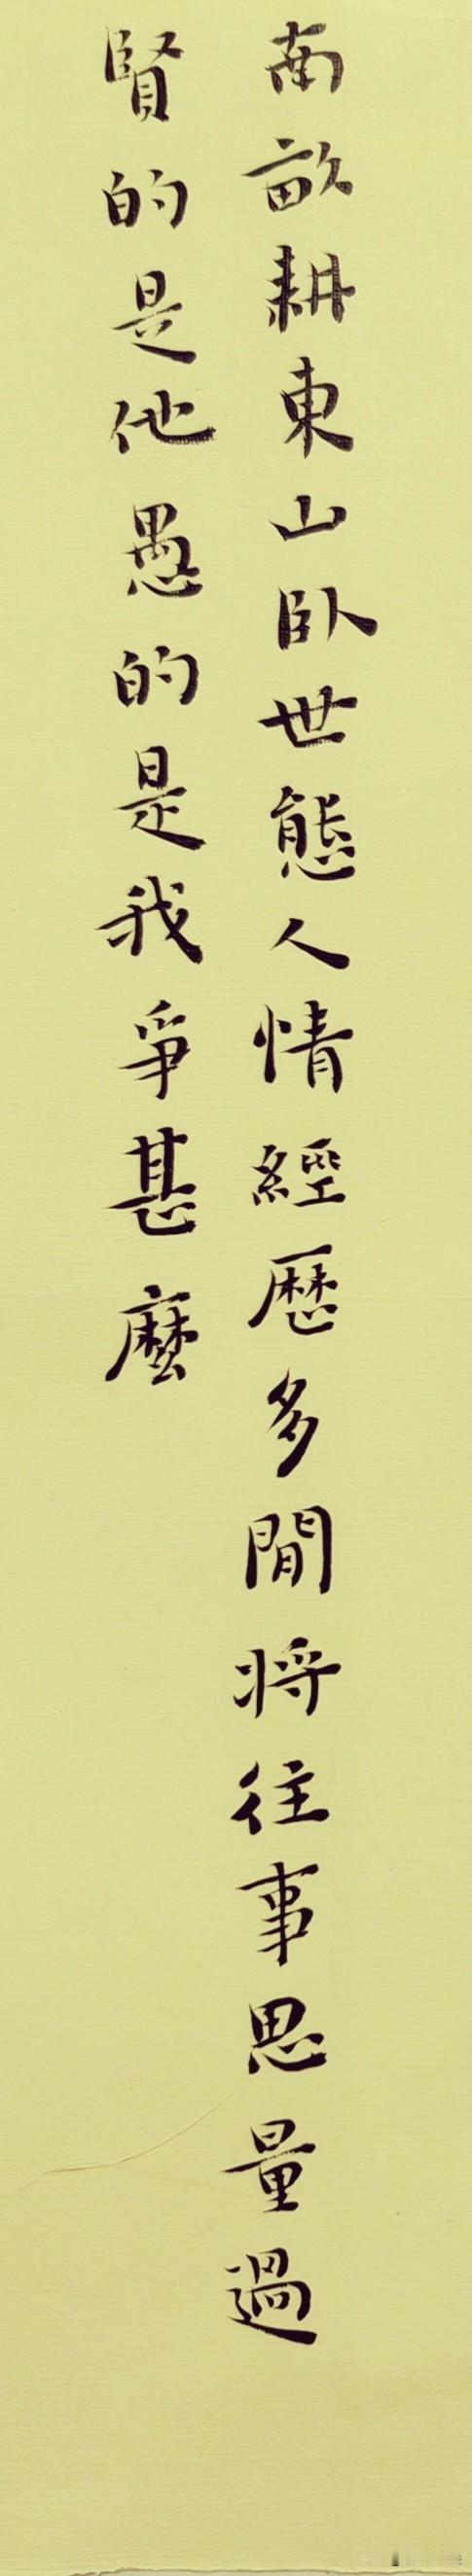 南畝耕東山臥世態人情經歷多閒將往事思量過
賢的是他愚的是我爭甚麼